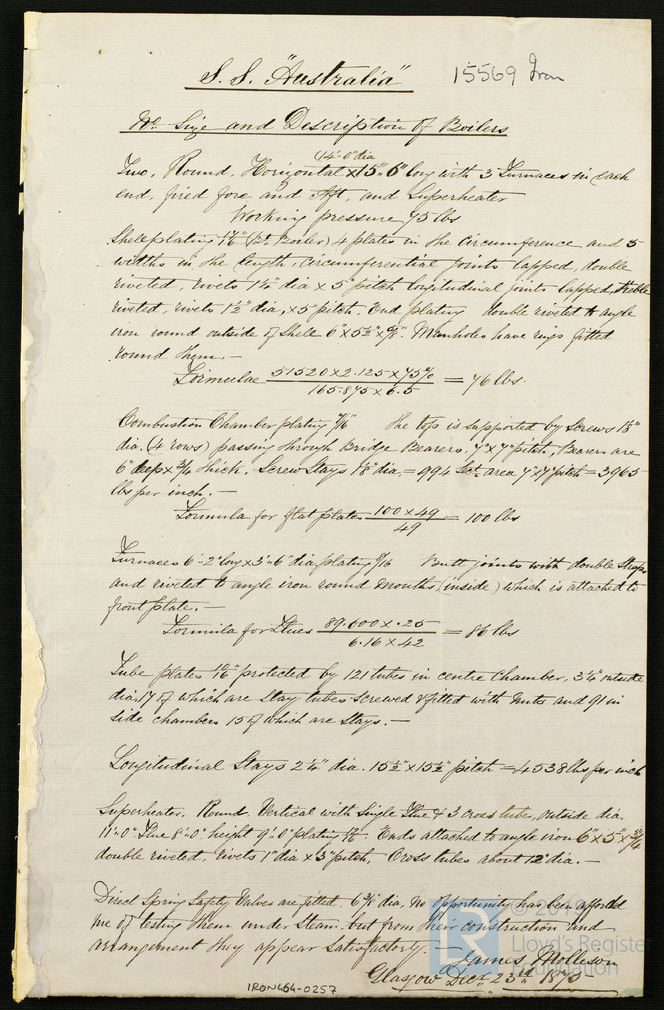 S. S. "Australia" 15569 Iron
No. Size and Description of Boilers
(14'-0" dia
Two, Round, Horizontal x 15'-6" long with 3 Furnaces in each
end, fired fore and Aft, and Superheater
Working pressure 75 lbs
Shell plating (Pr. Boiler) 4 plates in the Circumference and 5
widths in the length. Circumferential joints lapped, double
riveted, rivets dia x 5" pitch longitudinal joints lapped, treble
riveted, rivets 1½" dia, x 5" pitch. End plating double riveted to angle
iron round outside of Shell 6" x 5½" x Manholes have rings fitted
round them.—
Formulae 51520 x 2.125 x 75% / 165.875 x 6.5 = 76 lbs.
Combustion Chamber plating 7/16" The top is supported by Screws
dia. (4 rows) passing through Bridge Bearers. 7" x 7" pitch, Bearers are
6" deep x ¾ thick. Screw Stays dia. = 994 area 7" x 7" pitch = 3965
lbs per inch.—
Formula for flat plates 100 x 49 / 49 = 100 lbs
Furnaces 6'-2" long x 3'-6" dia plating Butt joints with double Straps
and riveted to angle iron round mouths (inside) which is attached to
front plate.—
Formula for Flues 89.600 x .25 / 6.16 x 42 = 86 lbs
Tube plates protected by 121 tubes in centre Chamber, 3¼" outside
dia. 17 of which are Stay tubes screwed & fitted with Nuts and 91 in
side chambers 15 of which are Stays.—
Longitudinal Stays 2¼" dia. 15½" x 15½" pitch = 4538 lbs per inch
Superheater. Round. Vertical with Single Flue & 3 cross tubes, outside dia.
11'-0" Flue 8'-0" height 9'-0" plating Ends attached to angle iron 6" x 5" x
double riveted, rivets 1" dia x 3" pitch.— Cross tubes about 12" dia.—
Direct Spring Safety Valves are fitted. dia. No opportunity has been afforded
me of testing them under Steam, but from their construction and
arrangement they appear satisfactory.—
James Mollison
Glasgow Decr. 23rd 1875
IRON464-0257
Lloyd's Register
Foundation